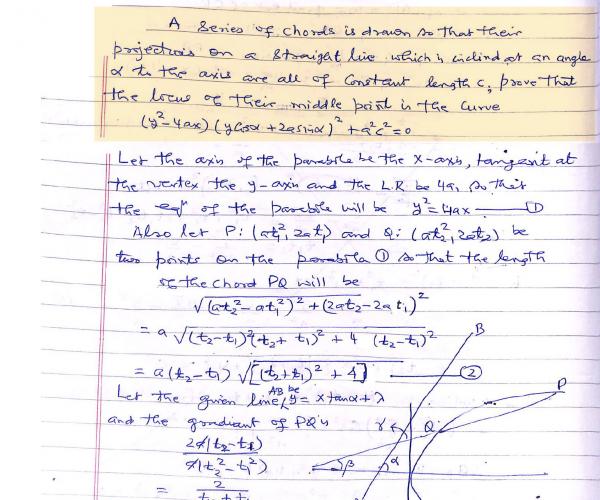 A series of chords is drawn so that their
projections on a straight line which is inclined at an angle
α to the axis are all of constant length c, prove that
the locus of their middle point is the curve
(y²-4ax)(ycosα+2asinα)²+a²c²=0
Let the axis of the parabola be the x-axis, tangent at
the vertex the y-axis and the L.R be 4a, so that
the eqⁿ of the parabola will be y²=4ax ——— ①
Also let P: (at₁², 2at₁) and Q: (at₂², 2at₂) be
two points on the parabola ① so that the length
of the chord PQ will be
√(at₂²-at₁²)²+(2at₂-2at₁)²
= a √(t₂-t₁)²(t₂+t₁)²+4 (t₂-t₁)²
B
= a(t₂-t₁) √[(t₂+t₁)²+4] ——— ②
Let the given line AB be y = xtanα+λ
P
and the gradient of PQ is
γ Q
2a(t₂-t₁)
a(t₂²-t₁²)
β α
= 2
t₂+t₁